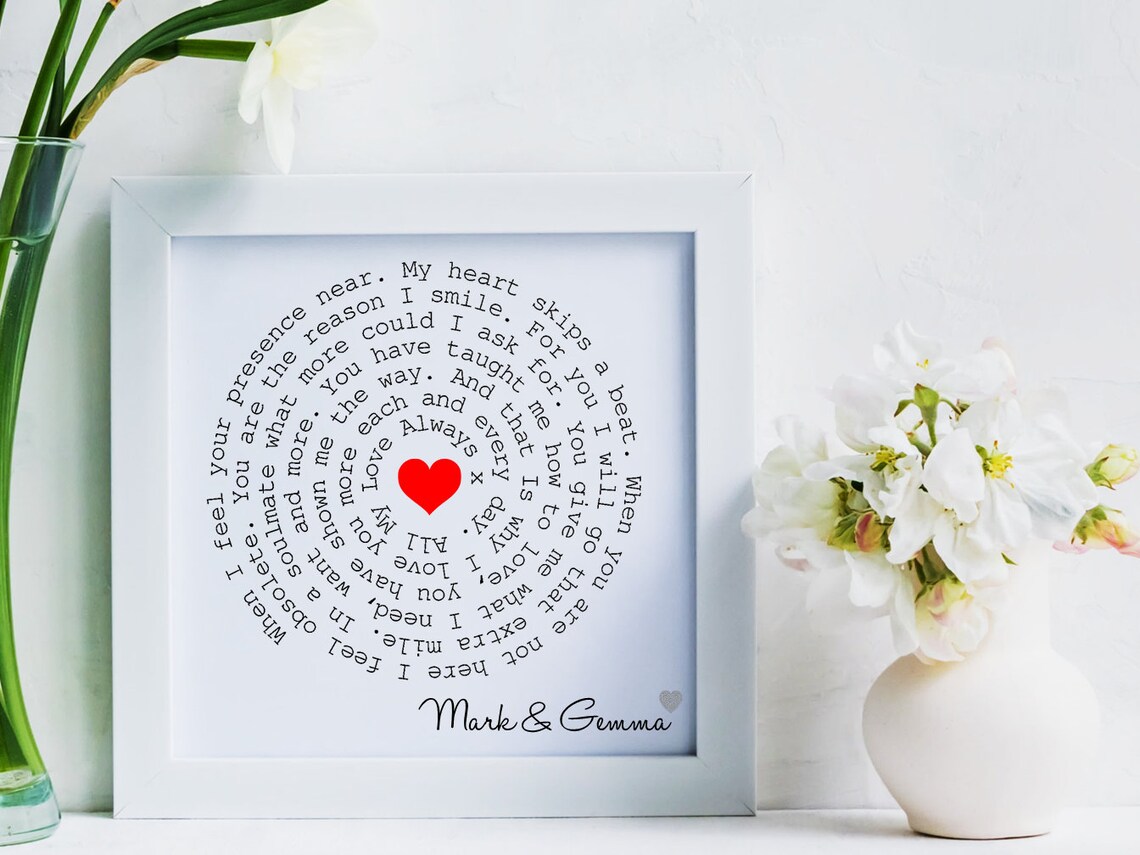 When I feel your presence near. My heart skips a beat. When you are not here I feel
obsolete. You are the reason I smile. For you I will go that extra mile.
In a soulmate what more could I ask for. You give me what I need,
want and more. You have taught me how to love, you have
shown me the way. And that Is why I love you
more each and every day. All
My Love Always x
Mark & Gemma